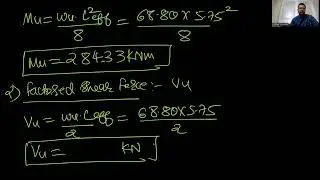 Mu = wu·l²eff/8 = 68.80×5.75²/8
Mu = 284.33 kNm
2) Factored shear force:- Vu
Vu = wu·leff/2 = 68.80×5.75/2
Vu = KN